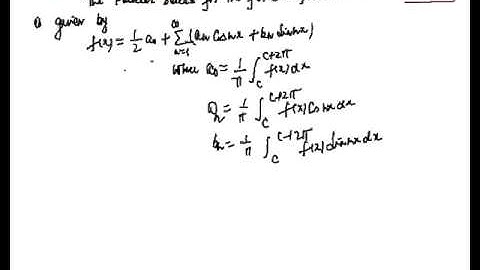 the Fourier Series for the
is given by
f(x) = 1/2 a₀ + ∑_{n=1}^{∞} (aₙ Cos nx + bₙ Sin nx)
Where a₀ = 1/π ∫_C^{C+2π} f(x) dx
aₙ = 1/π ∫_C^{C+2π} f(x) Cos nx dx
bₙ = 1/π ∫_C^{C+2π} f(x) Sin nx dx